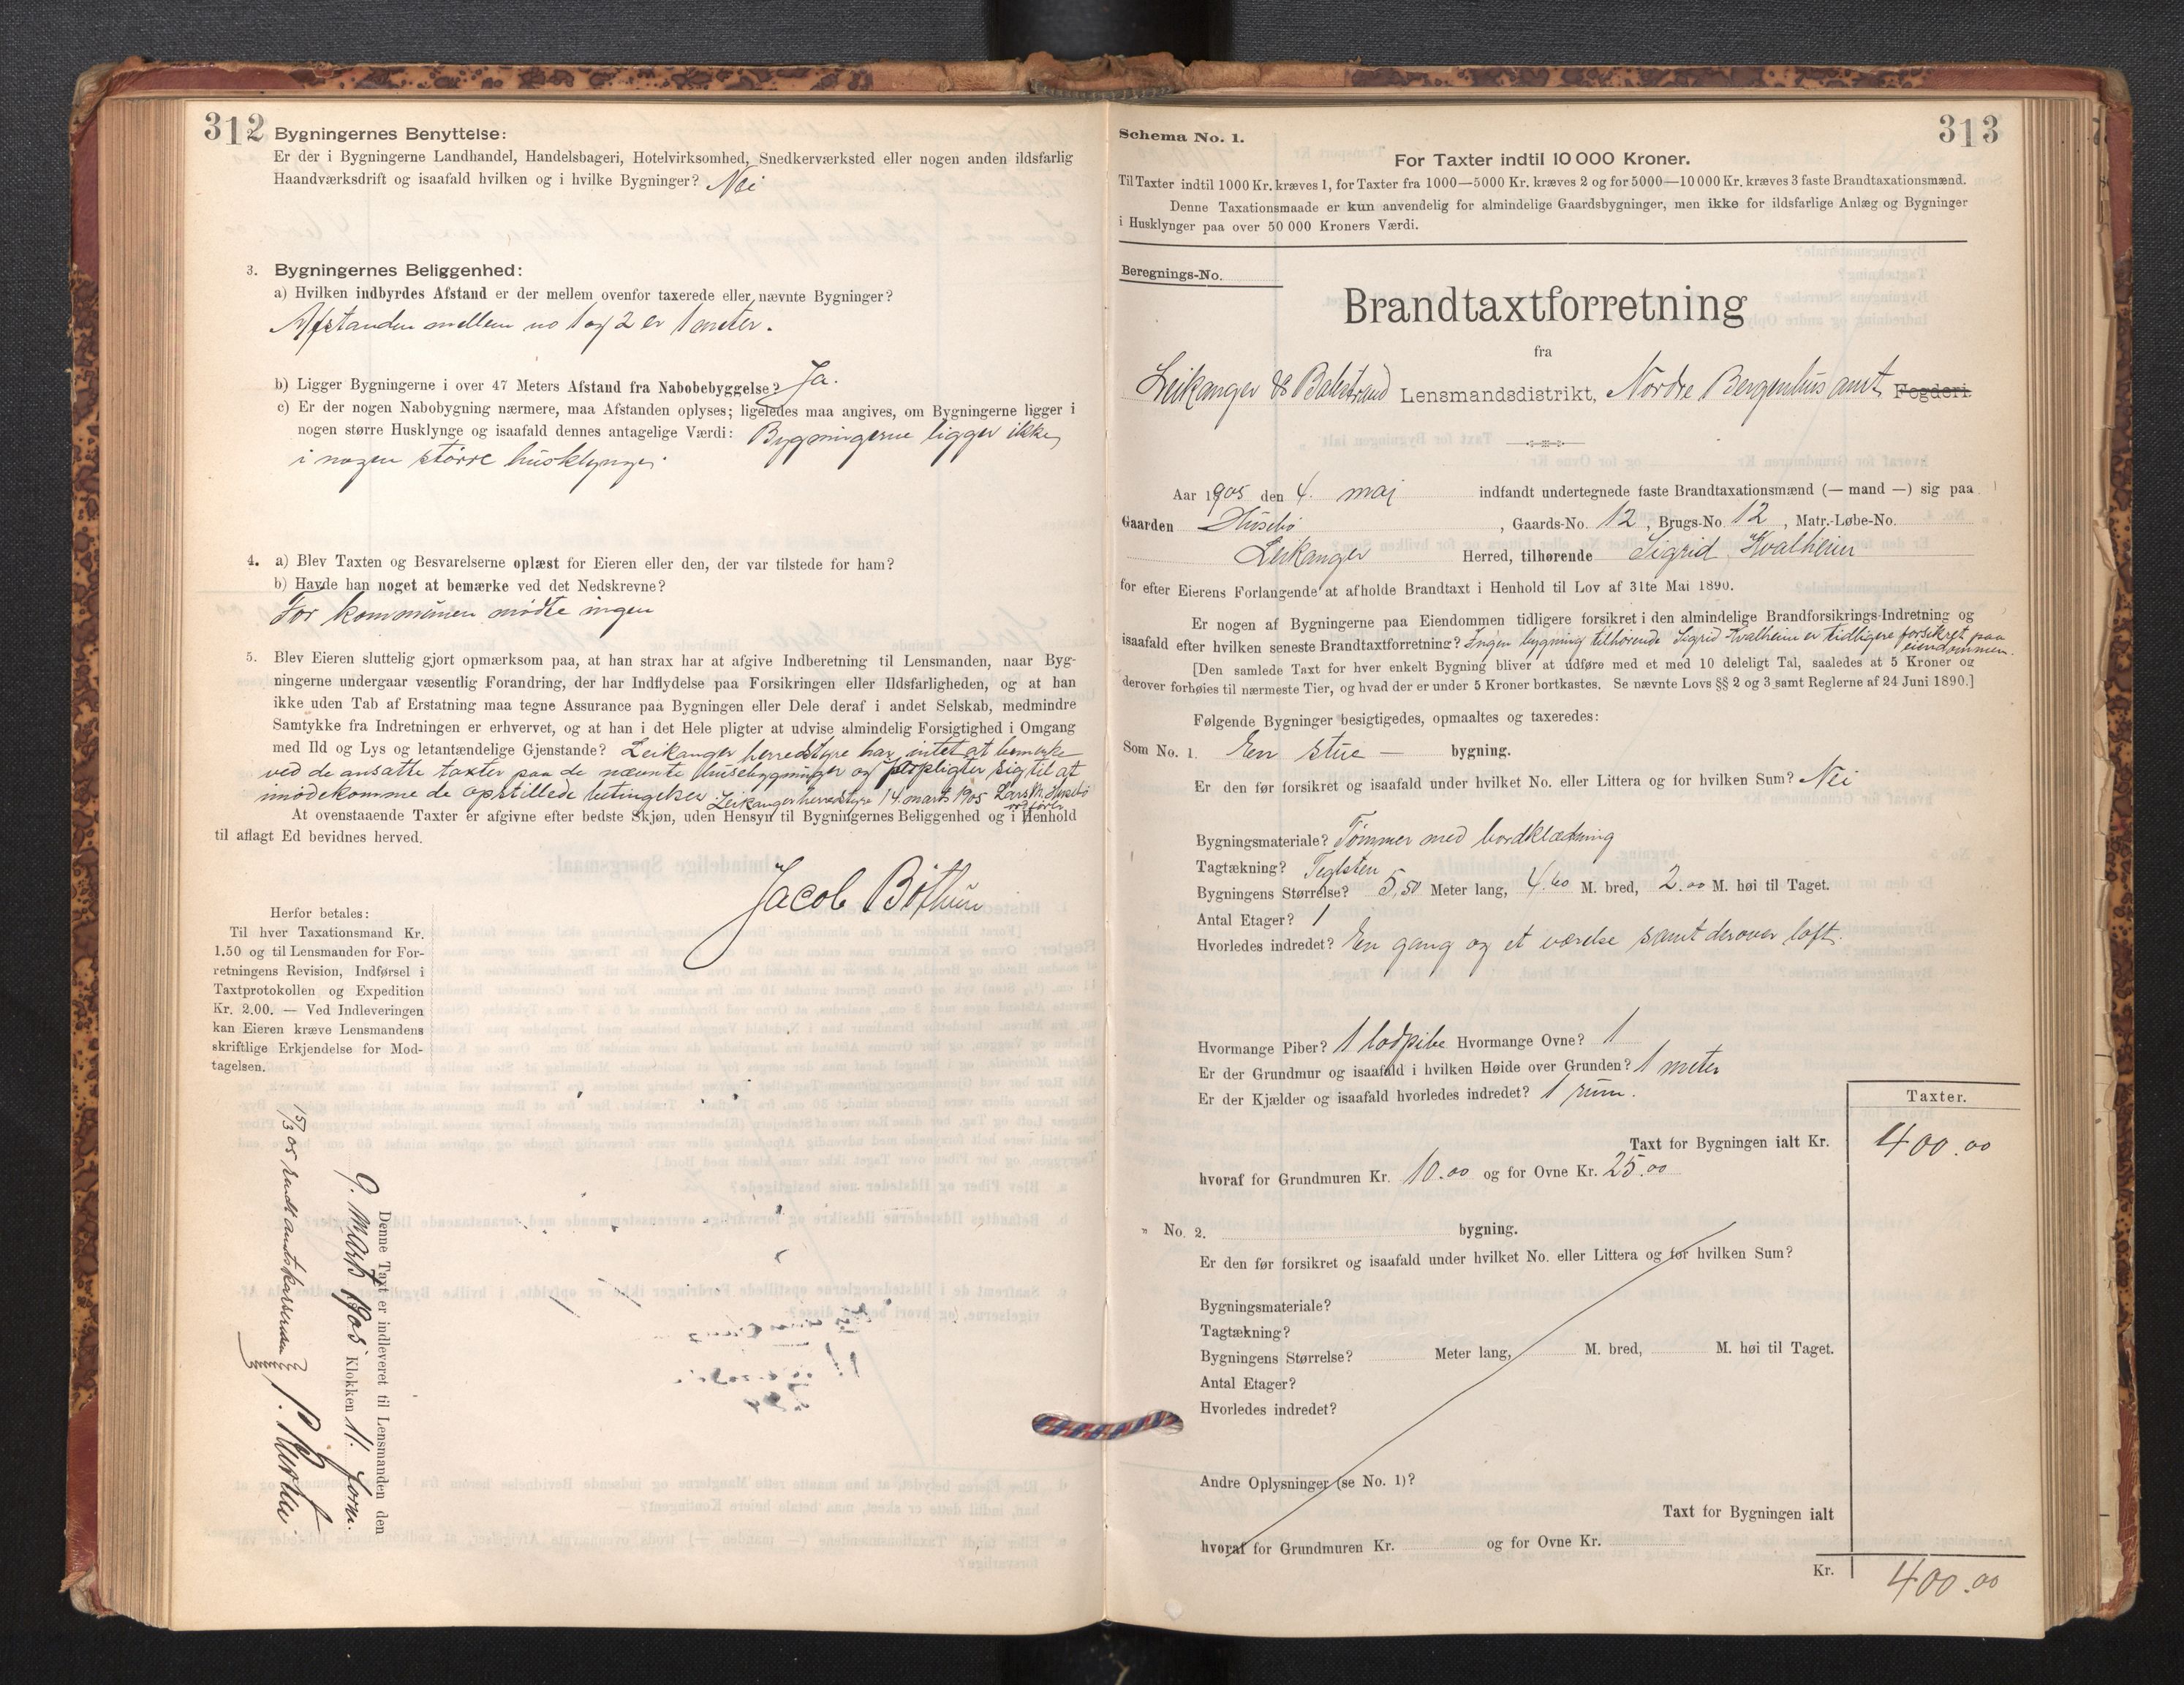 312
Bygningernes Benyttelse:
Er der i Bygningerne Landhandel, Handelsbageri, Hotelvirksomhed, Snedkerværksted eller nogen anden ildsfarlig
Haandværksdrift og isaafald hvilken og i hvilke Bygninger? Nei
3. Bygningernes Beliggenhed:
a) Hvilken indbyrdes Afstand er der mellem ovenfor taxerede eller nævnte Bygninger?
Afstanden mellem no 1 og 2 er 1 meter.
b) Ligger Bygningerne i over 47 Meters Afstand fra Nabobebyggelse? Ja.
c) Er der nogen Nabobygning nærmere, maa Afstanden oplyses; ligeledes maa angives, om Bygningerne ligger i
nogen større Husklynge og isaafald dennes antagelige Værdi: Bygningerne ligger ikke
i nogen større husklynge.
4. a) Blev Taxten og Besvarelserne oplæst for Eieren eller den, der var tilstede for ham?
b) Havde han noget at bemærke ved det Nedskrevne?
For kommunen mødte ingen
5. Blev Eieren sluttelig gjort opmærksom paa, at han strax har at afgive Indberetning til Lensmanden, naar Byg-
ningerne undergaar væsentlig Forandring, der har Indflydelse paa Forsikringen eller Ildsfarligheden, og at han
ikke uden Tab af Erstatning maa tegne Assurance paa Bygningen eller Dele deraf i andet Selskab, medmindre
Samtykke fra Indretningen er erhvervet, og at han i det Hele pligter at udvise almindelig Forsigtighed i Omgang
med Ild og Lys og letantændelige Gjenstande? Leikanger herredstyre har intet at bemerke
ved de ansatte taxter paa de nævnte husebygninger og forpligter sig til at
imødekomme de opstillede betingelser. Leikanger herredstyre 14. marts 1905 Lars M. Husebø
ordfører
At ovenstaaende Taxter er afgivne efter bedste Skjøn, uden Hensyn til Bygningernes Beliggenhed og i Henhold
til aflagt Ed bevidnes herved.
Jacob Bøthun
Herfor betales:
Til hver Taxationsmand Kr.
1.50 og til Lensmanden for For-
retningens Revision, Indførsel i
Taxtprotokollen og Expedition
Kr. 2.00. — Ved Indleveringen
kan Eieren kræve Lensmandens
skriftlige Erkjendelse for Mod-
tagelsen.
Denne Taxt er indleveret til Lensmanden den
9. Marts 1905 Klokken 11. form.
15/3 05 sendt amtskassereren
313
Schema No. 1.
For Taxter indtil 10 000 Kroner.
Til Taxter indtil 1000 Kr. kræves 1, for Taxter fra 1000—5000 Kr. kræves 2 og for 5000—10 000 Kr. kræves 3 faste Brandtaxationsmænd.
Denne Taxationsmaade er kun anvendelig for almindelige Gaardsbygninger, men ikke for ildsfarlige Anlæg og Bygninger
i Husklynger paa over 50 000 Kroners Værdi.
Beregnings-No.
Brandtaxtforretning
fra
Leikanger & Balestrand Lensmandsdistrikt, Nordre Bergenhus amt Fogderi
Aar 1905 den 4. maj indfandt undertegnede faste Brandtaxationsmænd (— mand —) sig paa
Gaarden Husebø, Gaards-No. 12, Brugs-No. 12, Matr.-Løbe-No.
Leikanger Herred, tilhørende Sigrid Kvalheim
for efter Eierens Forlangende at afholde Brandtaxt i Henhold til Lov af 31te Mai 1890.
Er nogen af Bygningerne paa Eiendommen tidligere forsikret i den almindelige Brandforsikrings-Indretning og
isaafald efter hvilken seneste Brandtaxtforretning? Ingen bygning tilhørende Sigrid Kvalheim er tidligere forsikret paa
eiendommen.
[Den samlede Taxt for hver enkelt Bygning bliver at udføre med et med 10 deleligt Tal, saaledes at 5 Kroner og
derover forhøies til nærmeste Tier, og hvad der er under 5 Kroner bortkastes. Se nævnte Lovs §§ 2 og 3 samt Reglerne af 24 Juni 1890.]
Følgende Bygninger besigtigedes, opmaaltes og taxeredes:
Som No. 1. En stue — bygning.
Er den før forsikret og isaafald under hvilket No. eller Littera og for hvilken Sum? Nei
Bygningsmateriale? Tømmer med bordklædning
Tagtækning? Teglsten
Bygningens Størrelse? 5,50 Meter lang, 4.60 M. bred, 2.00 M. høi til Taget.
Antal Etager? 1
Hvorledes indredet? En gang og et værelse samt derover loft.
Hvormange Piber? 1 lodpibe Hvormange Ovne? 1
Er der Grundmur og isaafald i hvilken Høide over Grunden? 1 meter
Er der Kjælder og isaafald hvorledes indredet? 1 rum.
Taxter.
Taxt for Bygningen ialt Kr. 400.00
hvoraf for Grundmuren Kr. 10.00 og for Ovne Kr. 25.00
" No. 2. bygning.
Er den før forsikret og isaafald under hvilket No. eller Littera og for hvilken Sum?
Bygningsmateriale?
Tagtækning?
Bygningens Størrelse? Meter lang, M. bred, M. høi til Taget.
Antal Etager?
Hvorledes indredet?
Andre Oplysninger (se No. 1)?
Taxt for Bygningen ialt
hvoraf for Grundmuren Kr. og for Ovne Kr.
Kr. 400.00